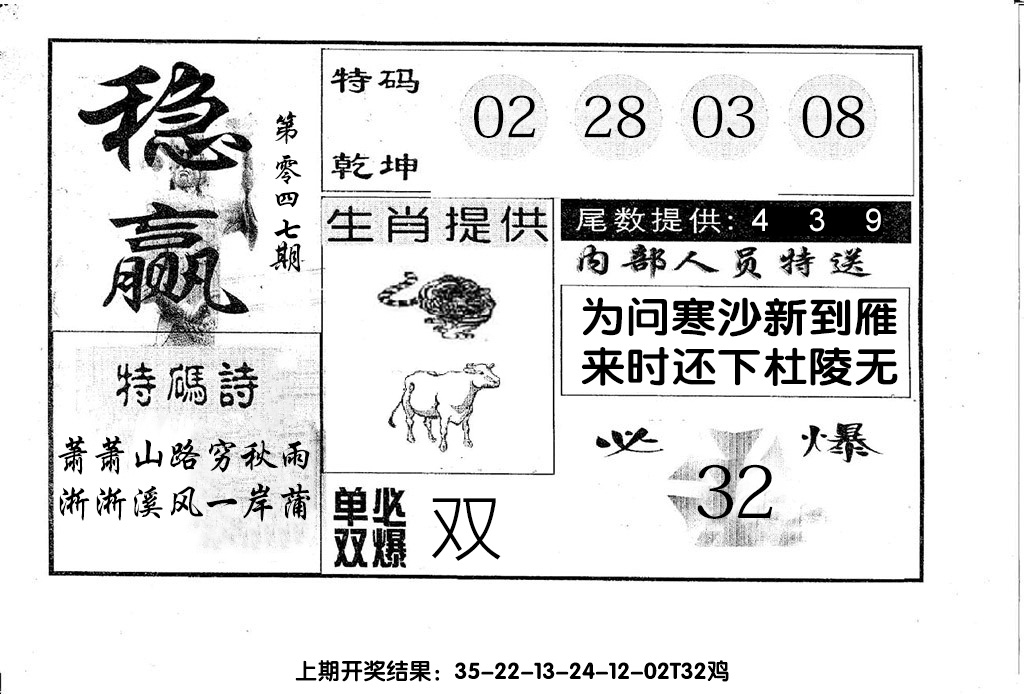 稳赢
第零四七期
特码
乾坤
02 28 03 08
生肖提供
尾数提供: 4 3 9
内部人员特送
为问寒沙新到雁
来时还下杜陵无
特碼詩
萧萧山路穷秋雨
淅淅溪风一岸蒲
单双必爆
双
必爆
32
上期开奖结果：35-22-13-24-12-02T32鸡